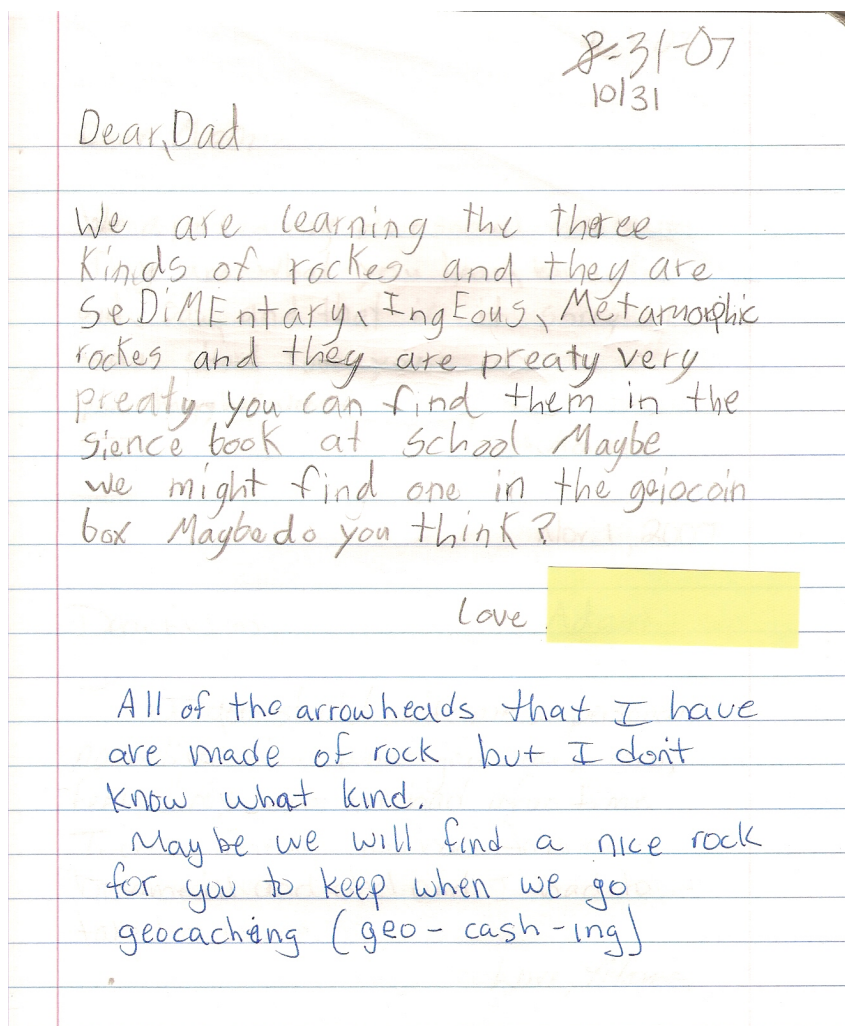 8-31-07
10/31
Dear, Dad
We are learning the three
Kinds of rockes and they are
SeDiMEntary, IngEous, Metamorphic
rockes and they are preaty very
preaty you can find them in the
sience book at school Maybe
we might find one in the geiocoin
box Maybe do you think?
Love
All of the arrowheads that I have
are made of rock but I don't
know what kind.
Maybe we will find a nice rock
for you to keep when we go
geocaching (geo-cash-ing)